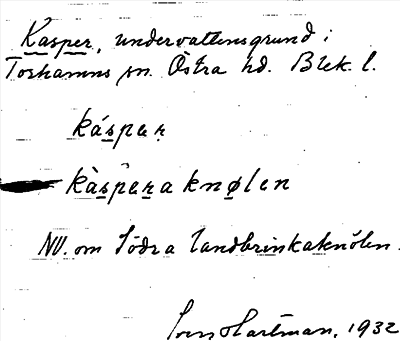 Kasper, undervattensgrund i
Torhamns sn. Östra hd. Blek. l.
káspar
kàspara knølen
NV. om Södra Landbrinkaknölen.
Sven Hartman, 1932